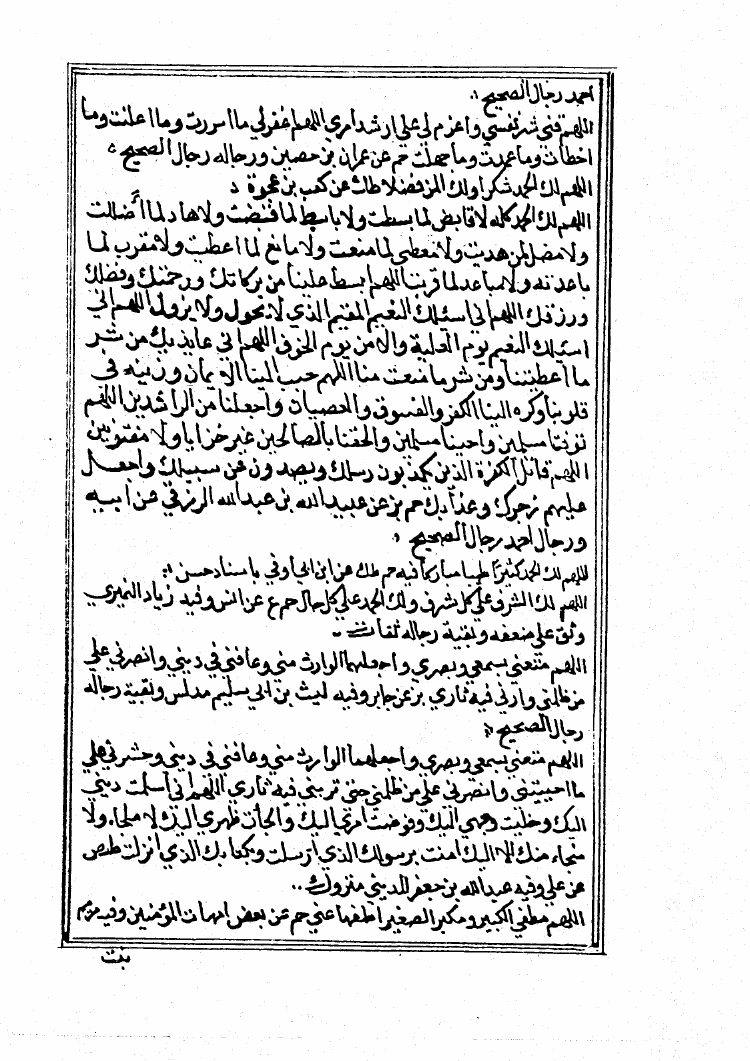 احمد رجال الصحيح
اللهم قني شر نفسي واعزم لي على ارشد امري اللهم اغفر لي ما اسررت وما اعلنت وما
اخطأت وما عمدت وما جهلت حم عن عمران بن حصين ورجاله رجال الصحيح
اللهم لك الحمد شكرا ولك المن فضلا طك عن كعب بن عجرة
اللهم لك الحمد كله لا قابض لما بسطت ولا باسط لما قبضت ولا هاد لما اضللت
ولا مضل لمن هديت ولا معطي لما منعت ولا مانع لما اعطيت ولا مقرب لما
باعدته ولا مباعد لما قربت اللهم ابسط علينا من بركاتك ورحمتك وفضلك
ورزقك اللهم اني اسئلك النعيم المقيم الذي لا يحول ولا يزول اللهم اني
اسئلك النعيم يوم العلية والامن يوم الخوف اللهم اني عايذ بك من شر
ما اعطيتنا ومن شر ما منعت منا اللهم حبب الينا الايمان وزينه في
قلوبنا وكره الينا الكفر والفسوق والعصيان واجعلنا من الراشدين اللهم
توفنا مسلمين واحينا مسلمين والحقنا بالصالحين غير خزايا ولا مفتونين
اللهم قاتل الكفرة الذين يكذبون رسلك ويصدون عن سبيلك واجعل
عليهم زجرك وعذابك حم بز عن عبيد الله بن عبد الله الرزقي عن ابيه
ورجال احمد رجال الصحيح
اللهم لك الحمد كثيرا طيبا مباركا فيه حم طك عن ابن ابي اوفي باسناد حسن
اللهم لك الشرف على كل شرف ولك الحمد على كل حال حم ع عن انس وفيه زياد النميري
وثق على ضعفه وبقية رجاله ثقات
اللهم متعني بسمعي وبصري واجعلهما الوارث مني وعافني في ديني وانصرني على
من ظلمني وارني فيه ثاري بز عن جابر وفيه ليث بن ابي سليم مدلس وبقية رجاله
رجال الصحيح
اللهم متعني بسمعي وبصري واجعلهما الوارث مني وعافني في ديني وحشرني على
ما احييتني وانصرني على من ظلمني حتى تريني فيه ثاري اللهم اني اسلمت ديني
اليك وخليت وجهي اليك وفوضت امري اليك والجأت ظهري اليك لا ملجاء ولا
منجاء منك الا اليك امنت برسولك الذي ارسلت وبكتابك الذي انزلت طص
عن علي وفيه عبد الله بن جعفر المديني متروك
اللهم مطفي الكبير ومكبر الصغير اطفها عني حم عن بعض امهات المؤمنين وفيه مريم
بنت